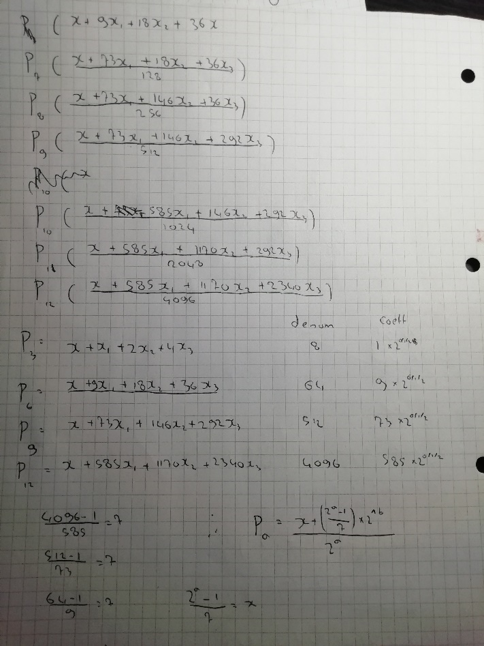 P ( x + 9x₁ + 18x₂ + 36x
P₇ ( x + 73x₁ + 18x₂ + 36x₃ / 128 )
P₈ ( x + 73x₁ + 146x₂ + 36x₃ / 256 )
P₉ ( x + 73x₁ + 146x₂ + 292x₃ / 512 )
P₁₀ ( x + 585x₁ + 146x₂ + 292x₃ / 1024 )
P₁₁ ( x + 585x₁ + 1170x₂ + 292x₃ / 2048 )
P₁₂ ( x + 585x₁ + 1170x₂ + 2340x₃ / 4096 )
denom coeff
P₃ = x + x₁ + 2x₂ + 4x₃ 8 1 × 2
P₆ = x + 9x₁ + 18x₂ + 36x₃ 64 9 × 2
P₉ = x + 73x₁ + 146x₂ + 292x₃ 512 73 × 2
P₁₂ = x + 585x₁ + 1170x₂ + 2340x₃ 4096 585 × 2
4096-1 / 585 = 7 ∴ Pₐ = x + (2ᵃ-1 / 7) × 2 / 2ᵃ
512-1 / 73 = 7
64-1 / 9 = 7 2ᵃ-1 / 7 = x